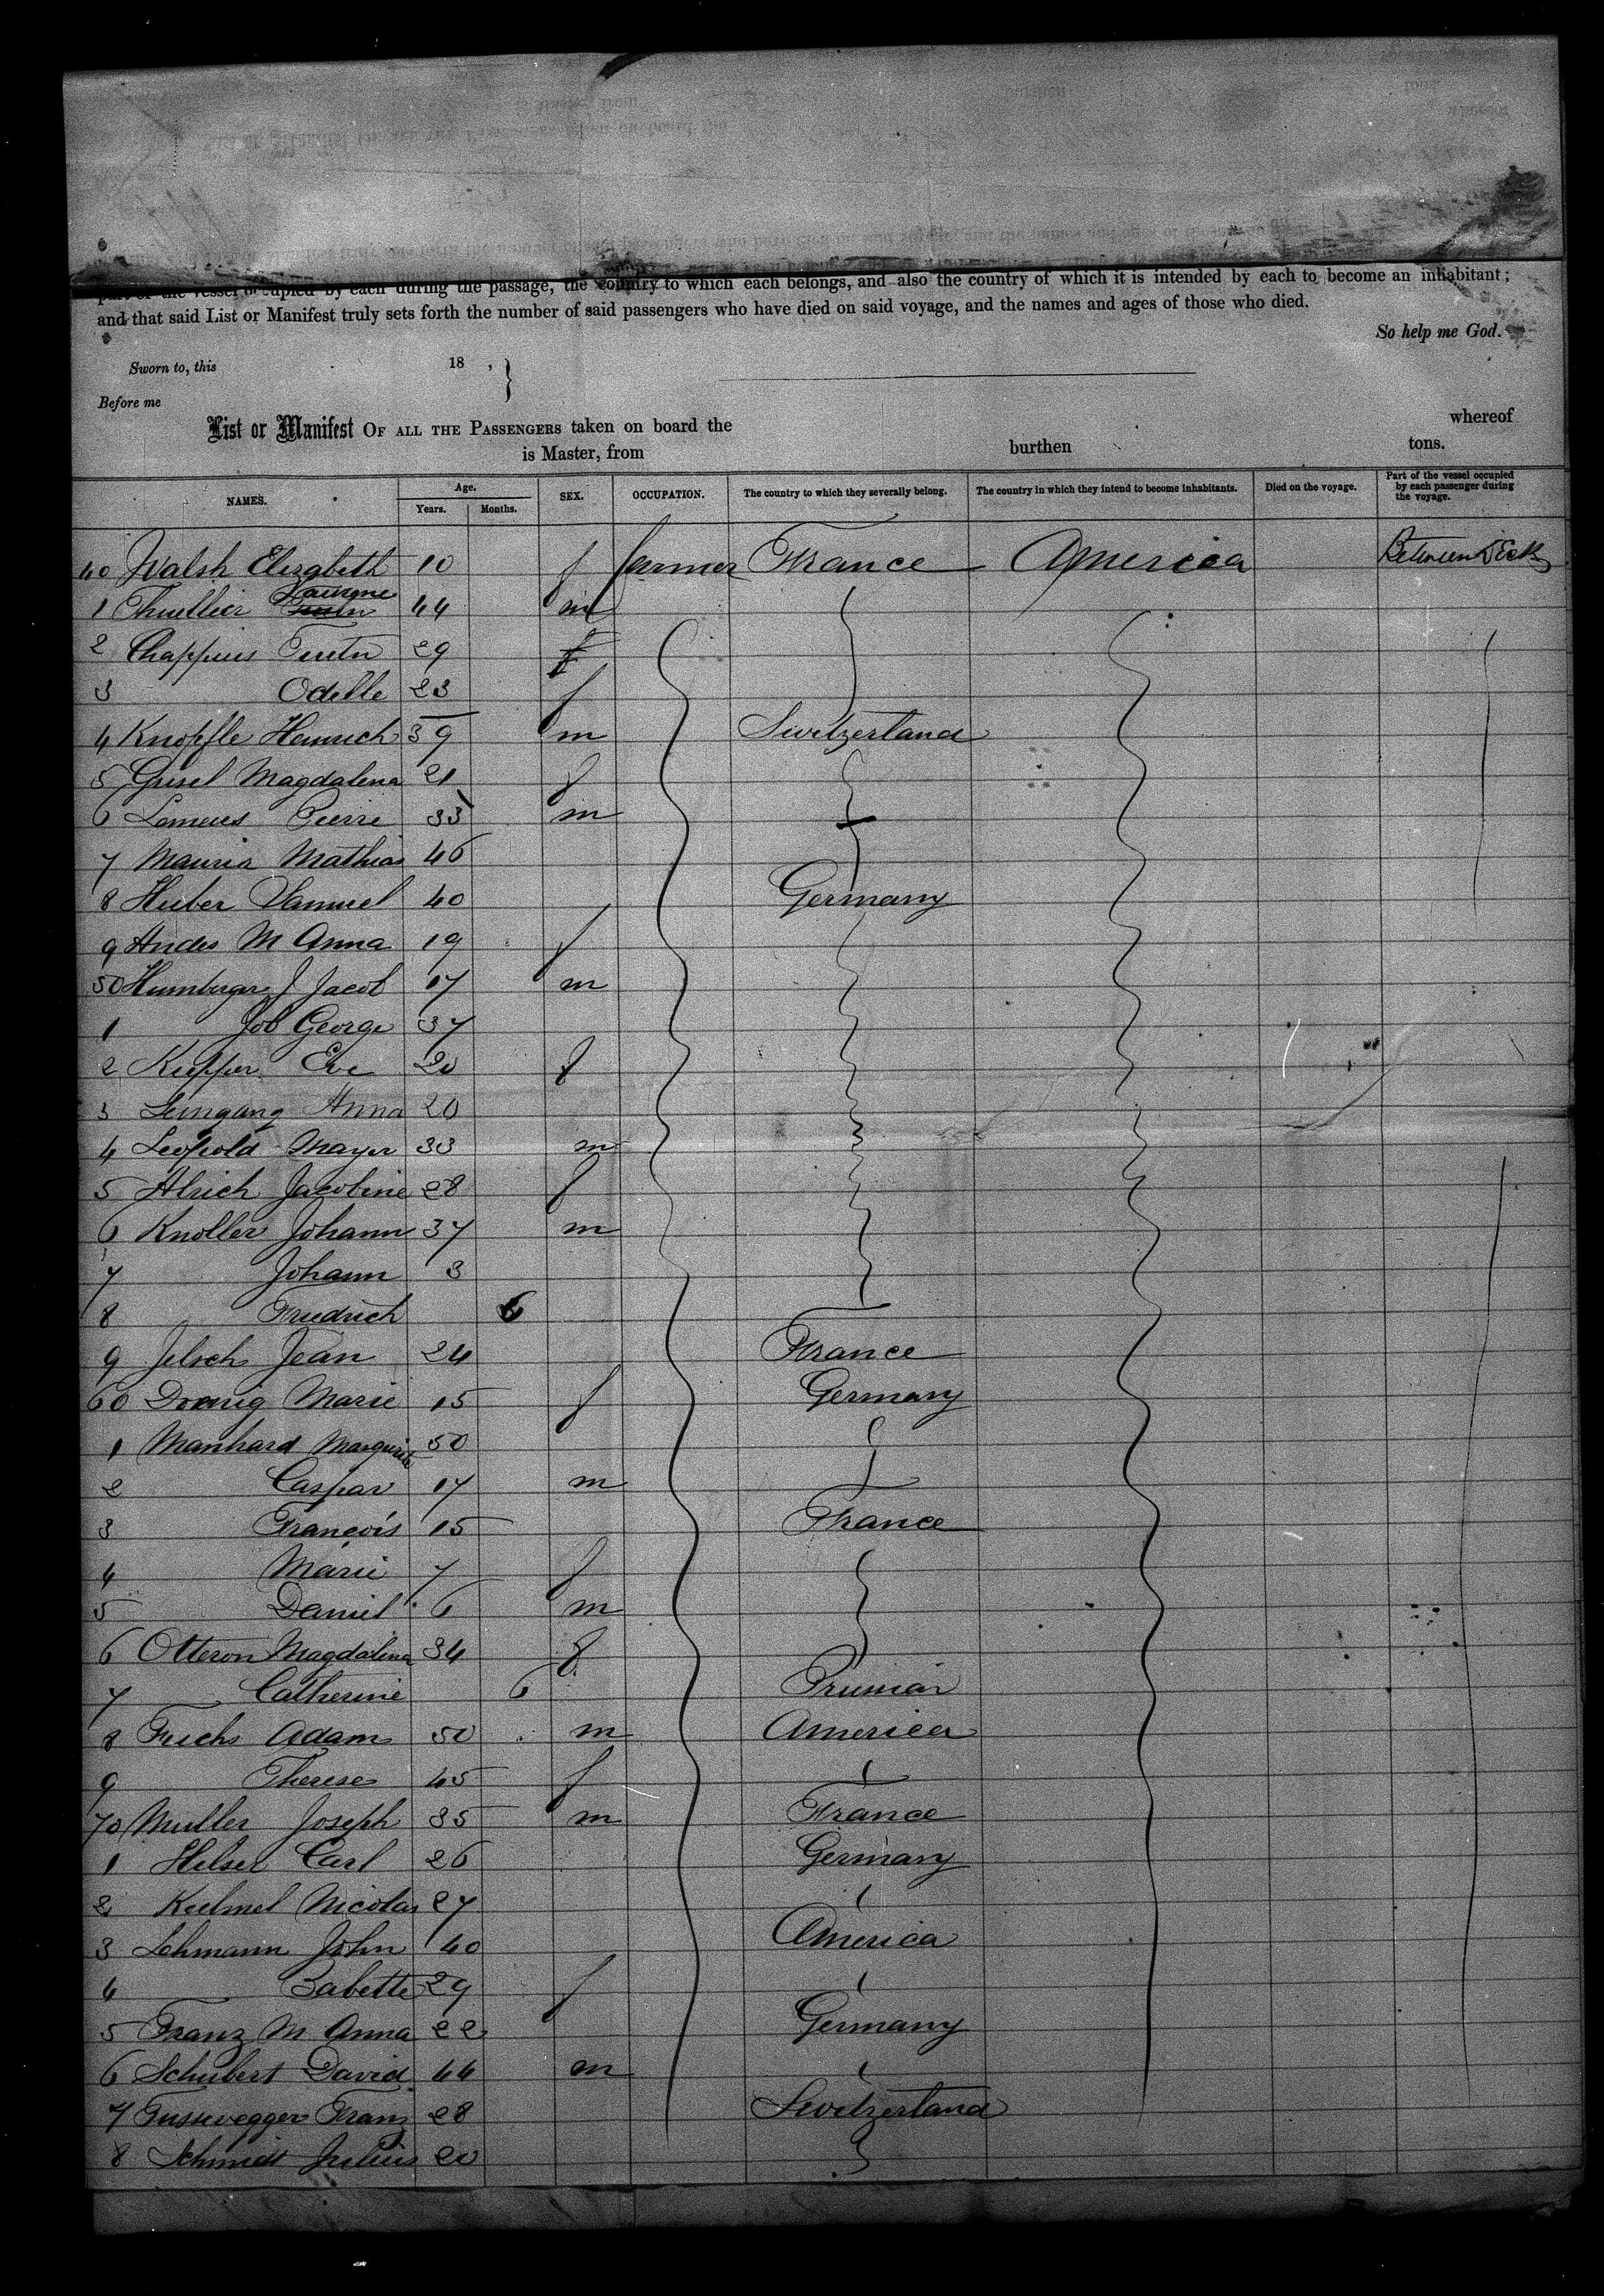 part of the vessel occupied by each during the passage, the country to which each belongs, and also the country of which it is intended by each to become an inhabitant;
and that said List or Manifest truly sets forth the number of said passengers who have died on said voyage, and the names and ages of those who died.
So help me God.
Sworn to, this 18 , }
Before me
List or Manifest OF ALL THE PASSENGERS taken on board the whereof
is Master, from burthen tons.
NAMES. Age. Years. Months. SEX. OCCUPATION. The country to which they severally belong. The country in which they intend to become inhabitants. Died on the voyage. Part of the vessel occupied by each passenger during the voyage.
40 Walsh Elizabeth 10 f farmer France America Between Deck
1 Thuellier 44 m
2 Chappuis 29 f
3 Odelle 23 f
4 Knopfle Heinrich 39 m Switzerland
5 Grisel Magdalena 21 f
6 Pierre 33 m
7 Mathias 46
8 Huber Samuel 40 Germany
9 M Anna 19 f
50 Humberger J Jacob 17 m
1 Job George 37
2 Kupper Eve 20 f
3 Leingang Anna 20
4 Leopold Mayer 33 m
5 Alrich Jacobine 28 f
6 Knoller Johann 37 m
7 Johann 3
8 Friedrich 6
9 Jelsch Jean 24 France
60 Marie 15 f Germany
1 Manhard Marguerite 50
2 Caspar 17 m
3 François 15 France
4 Marie 7 f
5 Daniel 6 m
6 Otteron Magdalena 34 f
7 Catherine 6 Prussian
8 Fuchs Adam 50 m America
9 Therese 45 f
70 Muller Joseph 35 m France
1 Helser Carl 26 Germany
2 Kielmel Nicolas 27
3 Lehmann John 40 America
4 Babette 29 f
5 Franz M Anna 22 Germany
6 Schubert David 44 m
7 Gussivegger Franz 28 Switzerland
8 Schmidt Julius 20